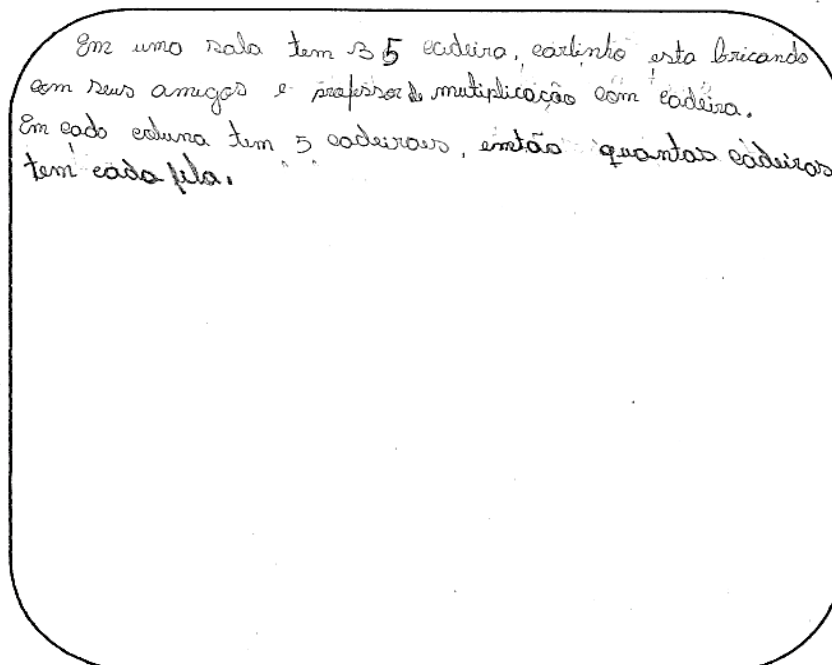 Em uma sala tem 35 cadeira, carlinho esta bricando
com seus amigos e professor de mutiplicação com cadeira.
Em cado coluna tem 5 cadeiraus, emtão quantas cadeiras
tem cada fila.